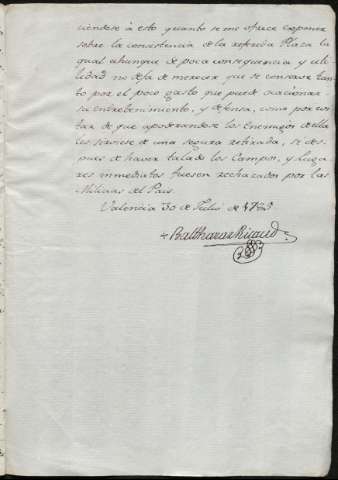 ciendose à esto quanto se me ofrece exponer
sobre la consistencia de la referida Plaza la
qual ahunque de poca consequencia y uti-
lidad no deja de merecer que se conserve tan-
to por el poco gasto que puede ocacionar
su entretenimiento, y defensa, como por evi-
tar de que apoderandose los Enemigos de ella
les serviese de una segura retirada, si des-
pues de haver talado los Campos, y Luga-
res immediatos fuesen rechazados por las
Milicias del Pais.
Valencia 30 de Julio de
Balthazar Ricaud